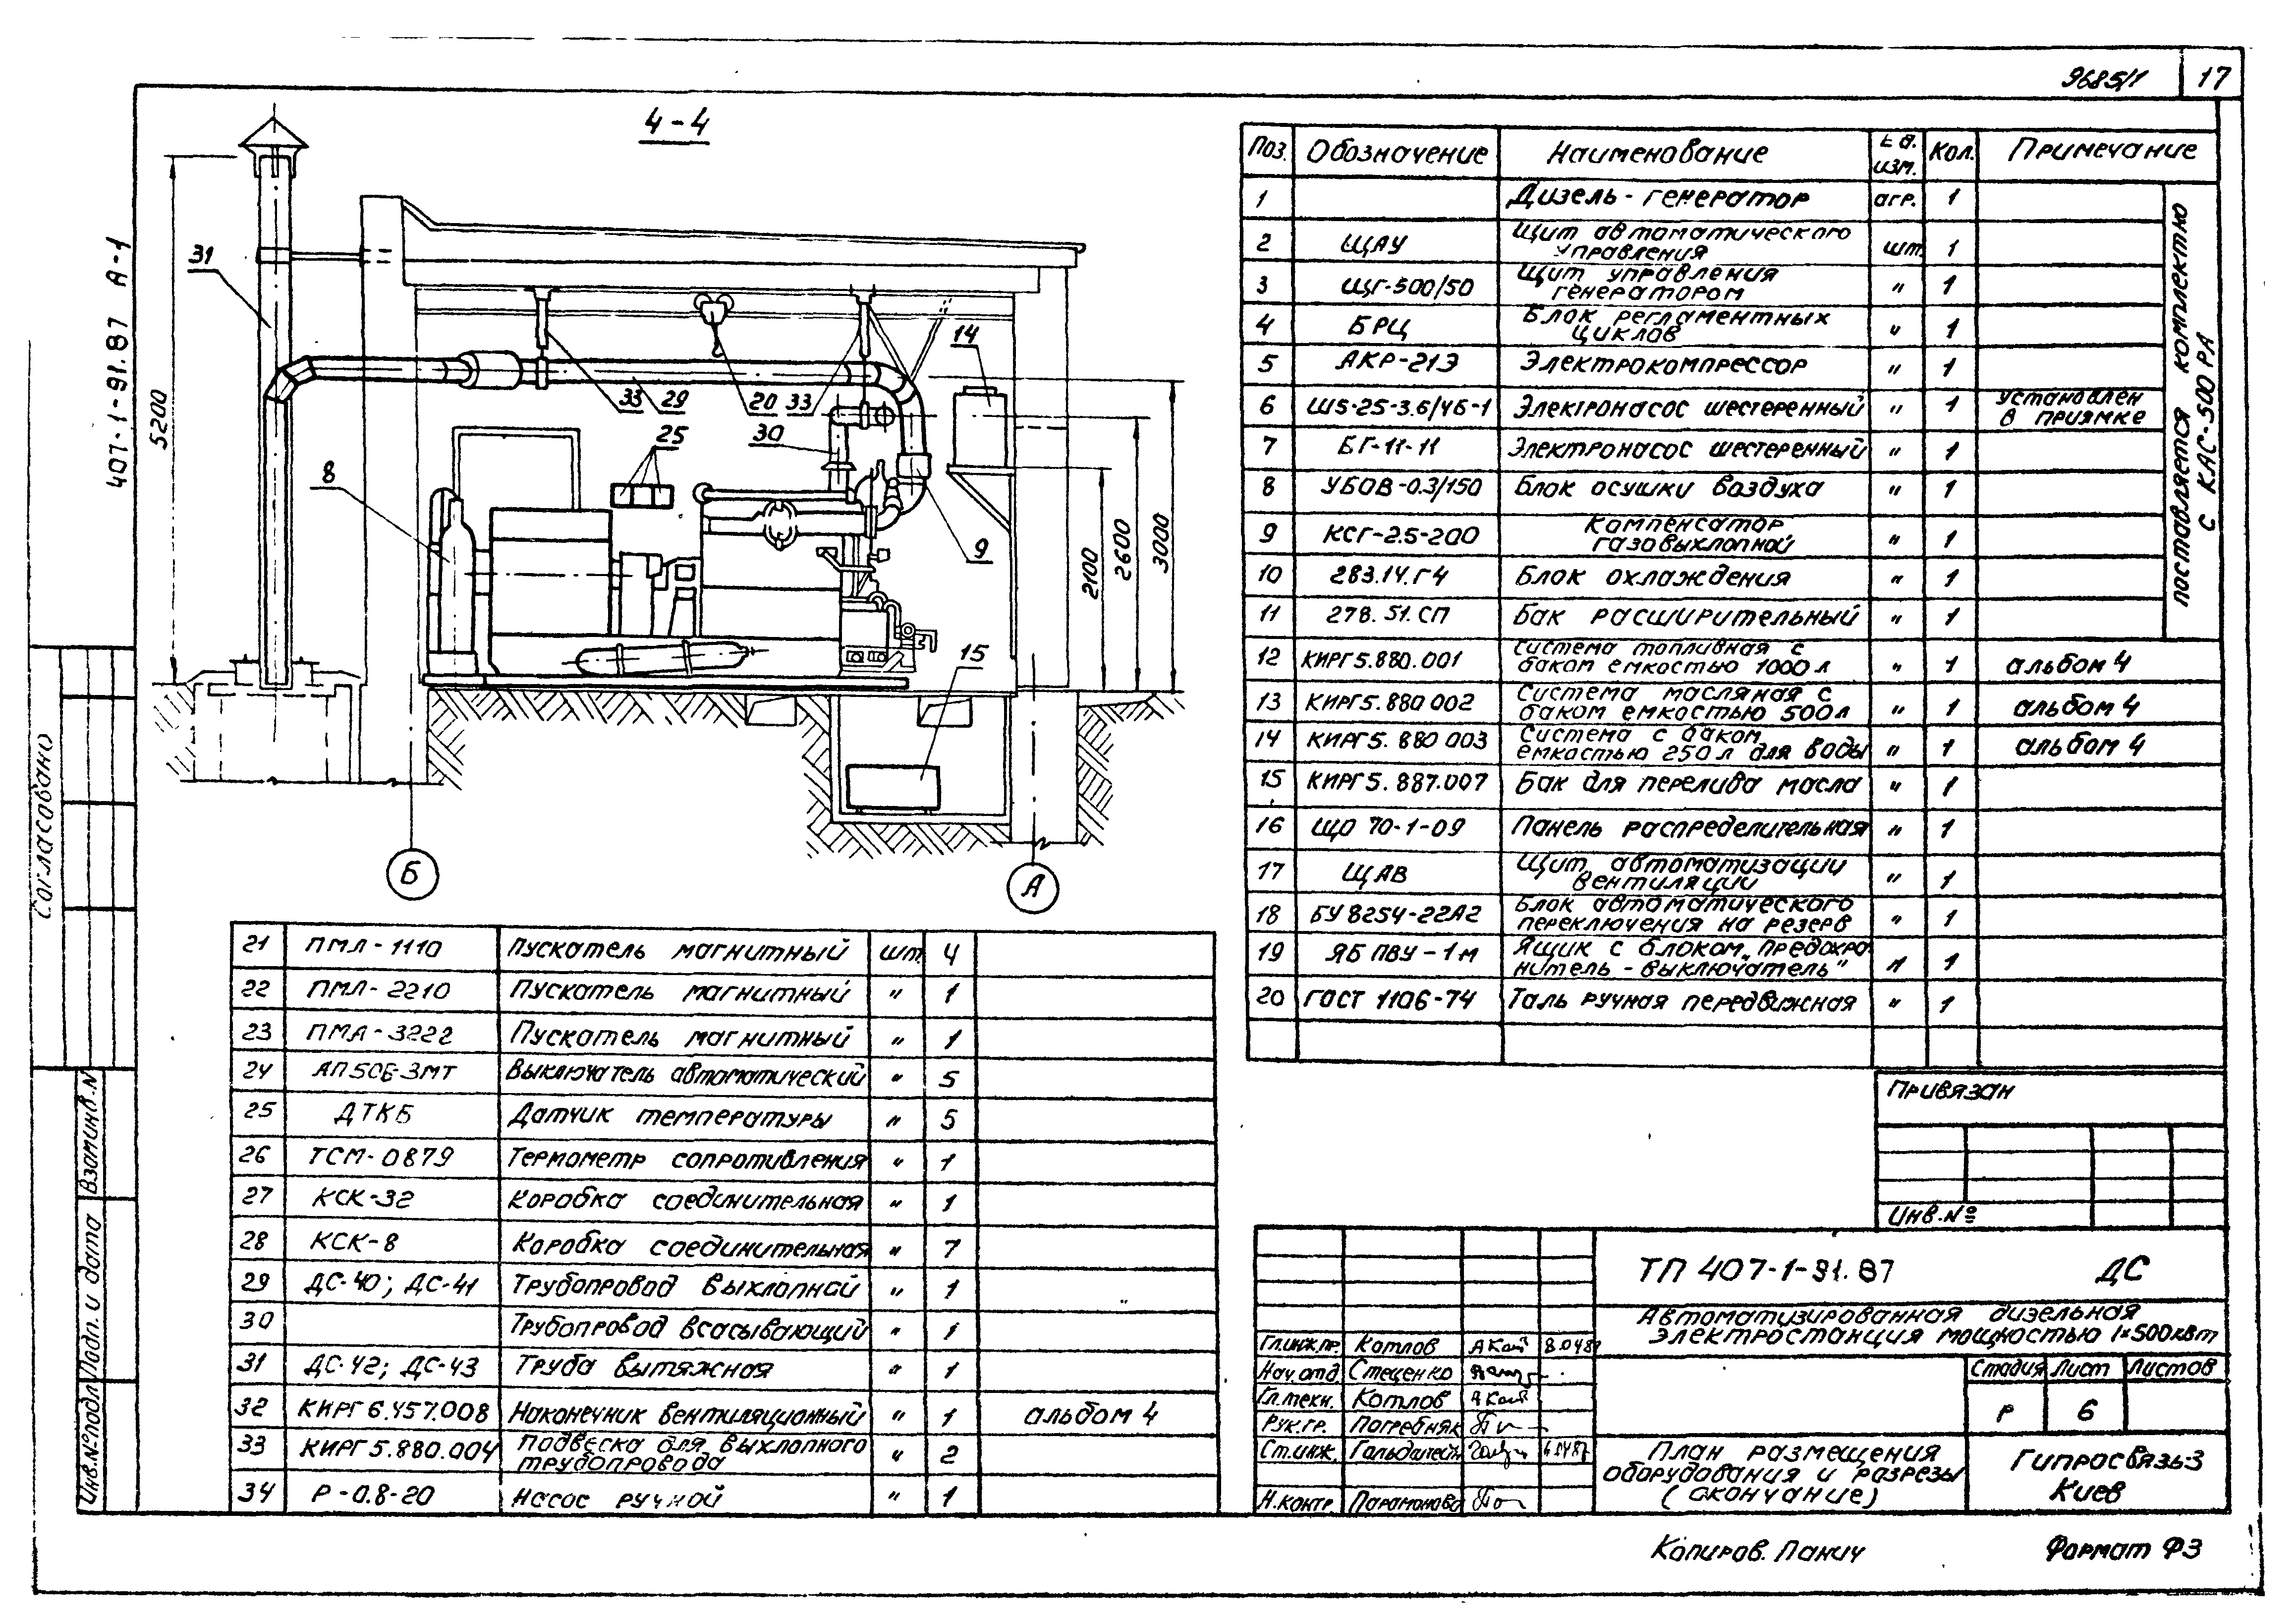 9685/1 17
407-1-91.87 А-1
4-4
5200
31
33 29 20 33
14
30
25
8
9
2100
2600
3000
15
Б
А
Поз. Обозначение Наименование Ед. изм. Кол. Примечание
1 Дизель-генератор агр. 1
2 ЩАУ Щит автоматического управления шт. 1
3 ЩГ-500/50 Щит управления генератором " 1
4 БРЦ Блок регламентных циклов " 1
5 АКР-21Э Электрокомпрессор " 1
6 Ш5-25-3.6/4Б-1 Электронасос шестеренный " 1 установлен в приямке
7 БГ-11-11 Электронасос шестеренный " 1
8 УБОВ-0.3/150 Блок осушки воздуха " 1
9 КСГ-2.5-200 Компенсатор газовыхлопной " 1
10 283.14.Г4 Блок охлаждения " 1
11 278.51.СП Бак расширительный " 1
поставляется комплектно
с КАС-500 РА
12 КИРГ5.880.001 Система топливная с баком емкостью 1000 л " 1 альбом 4
13 КИРГ5.880 002 Система масляная с баком емкостью 500 л " 1 альбом 4
14 КИРГ5. 880 003 Система с баком емкостью 250 л для воды " 1 альбом 4
15 КИРГ5. 887.007 Бак для перелива масла " 1
16 ЩО 70-1-09 Панель распределительная " 1
17 ЩАВ Щит автоматизации вентиляции " 1
18 БУ 8254-22А2 Блок автоматического переключения на резерв " 1
19 ЯБ ПВУ-1м Ящик с блоком „предохранитель-выключатель" " 1
20 ГОСТ 1106-74 Таль ручная передвижная " 1
21 ПМЛ-1110 Пускатель магнитный шт 4
22 ПМЛ-2210 Пускатель магнитный " 1
23 ПМА-3222 Пускатель магнитный " 1
24 АП50Б-3МТ Выключатель автоматический " 5
25 ДТКБ Датчик температуры " 5
26 ТСМ-0879 Термометр сопротивления " 1
27 КСК-32 Коробка соединительная " 1
28 КСК-8 Коробка соединительная " 7
29 ДС-40; ДС-41 Трубопровод выхлопной " 1
30 Трубопровод всасывающий " 1
31 ДС-42; ДС-43 Труба вытяжная " 1
32 КИРГ6.457.008 Наконечник вентиляционный " 1 альбом 4
33 КИРГ5.880.004 Подвеска для выхлопного трубопровода " 2
34 Р-0.8-20 Насос ручной " 1
Согласовано
Инв.№подл Подп. и дата Взам инв.N
Привязан
Инв.№
ТП 407-1-91.87 ДС
Автоматизированная дизельная
электростанция мощностью 1×500кВт
Гл.инж.пр. Котлов
Нач.отд. Стеценко
Гл.техн. Котлов
Рук.гр. Погребняк
Ст.инж.
Н.контр. Парамонова
Стадия Лист Листов
Р 6
План размещения
оборудования и разрезы
(окончание)
Гипросвязь-3
Киев
Копиров. Панич Формат Ф3